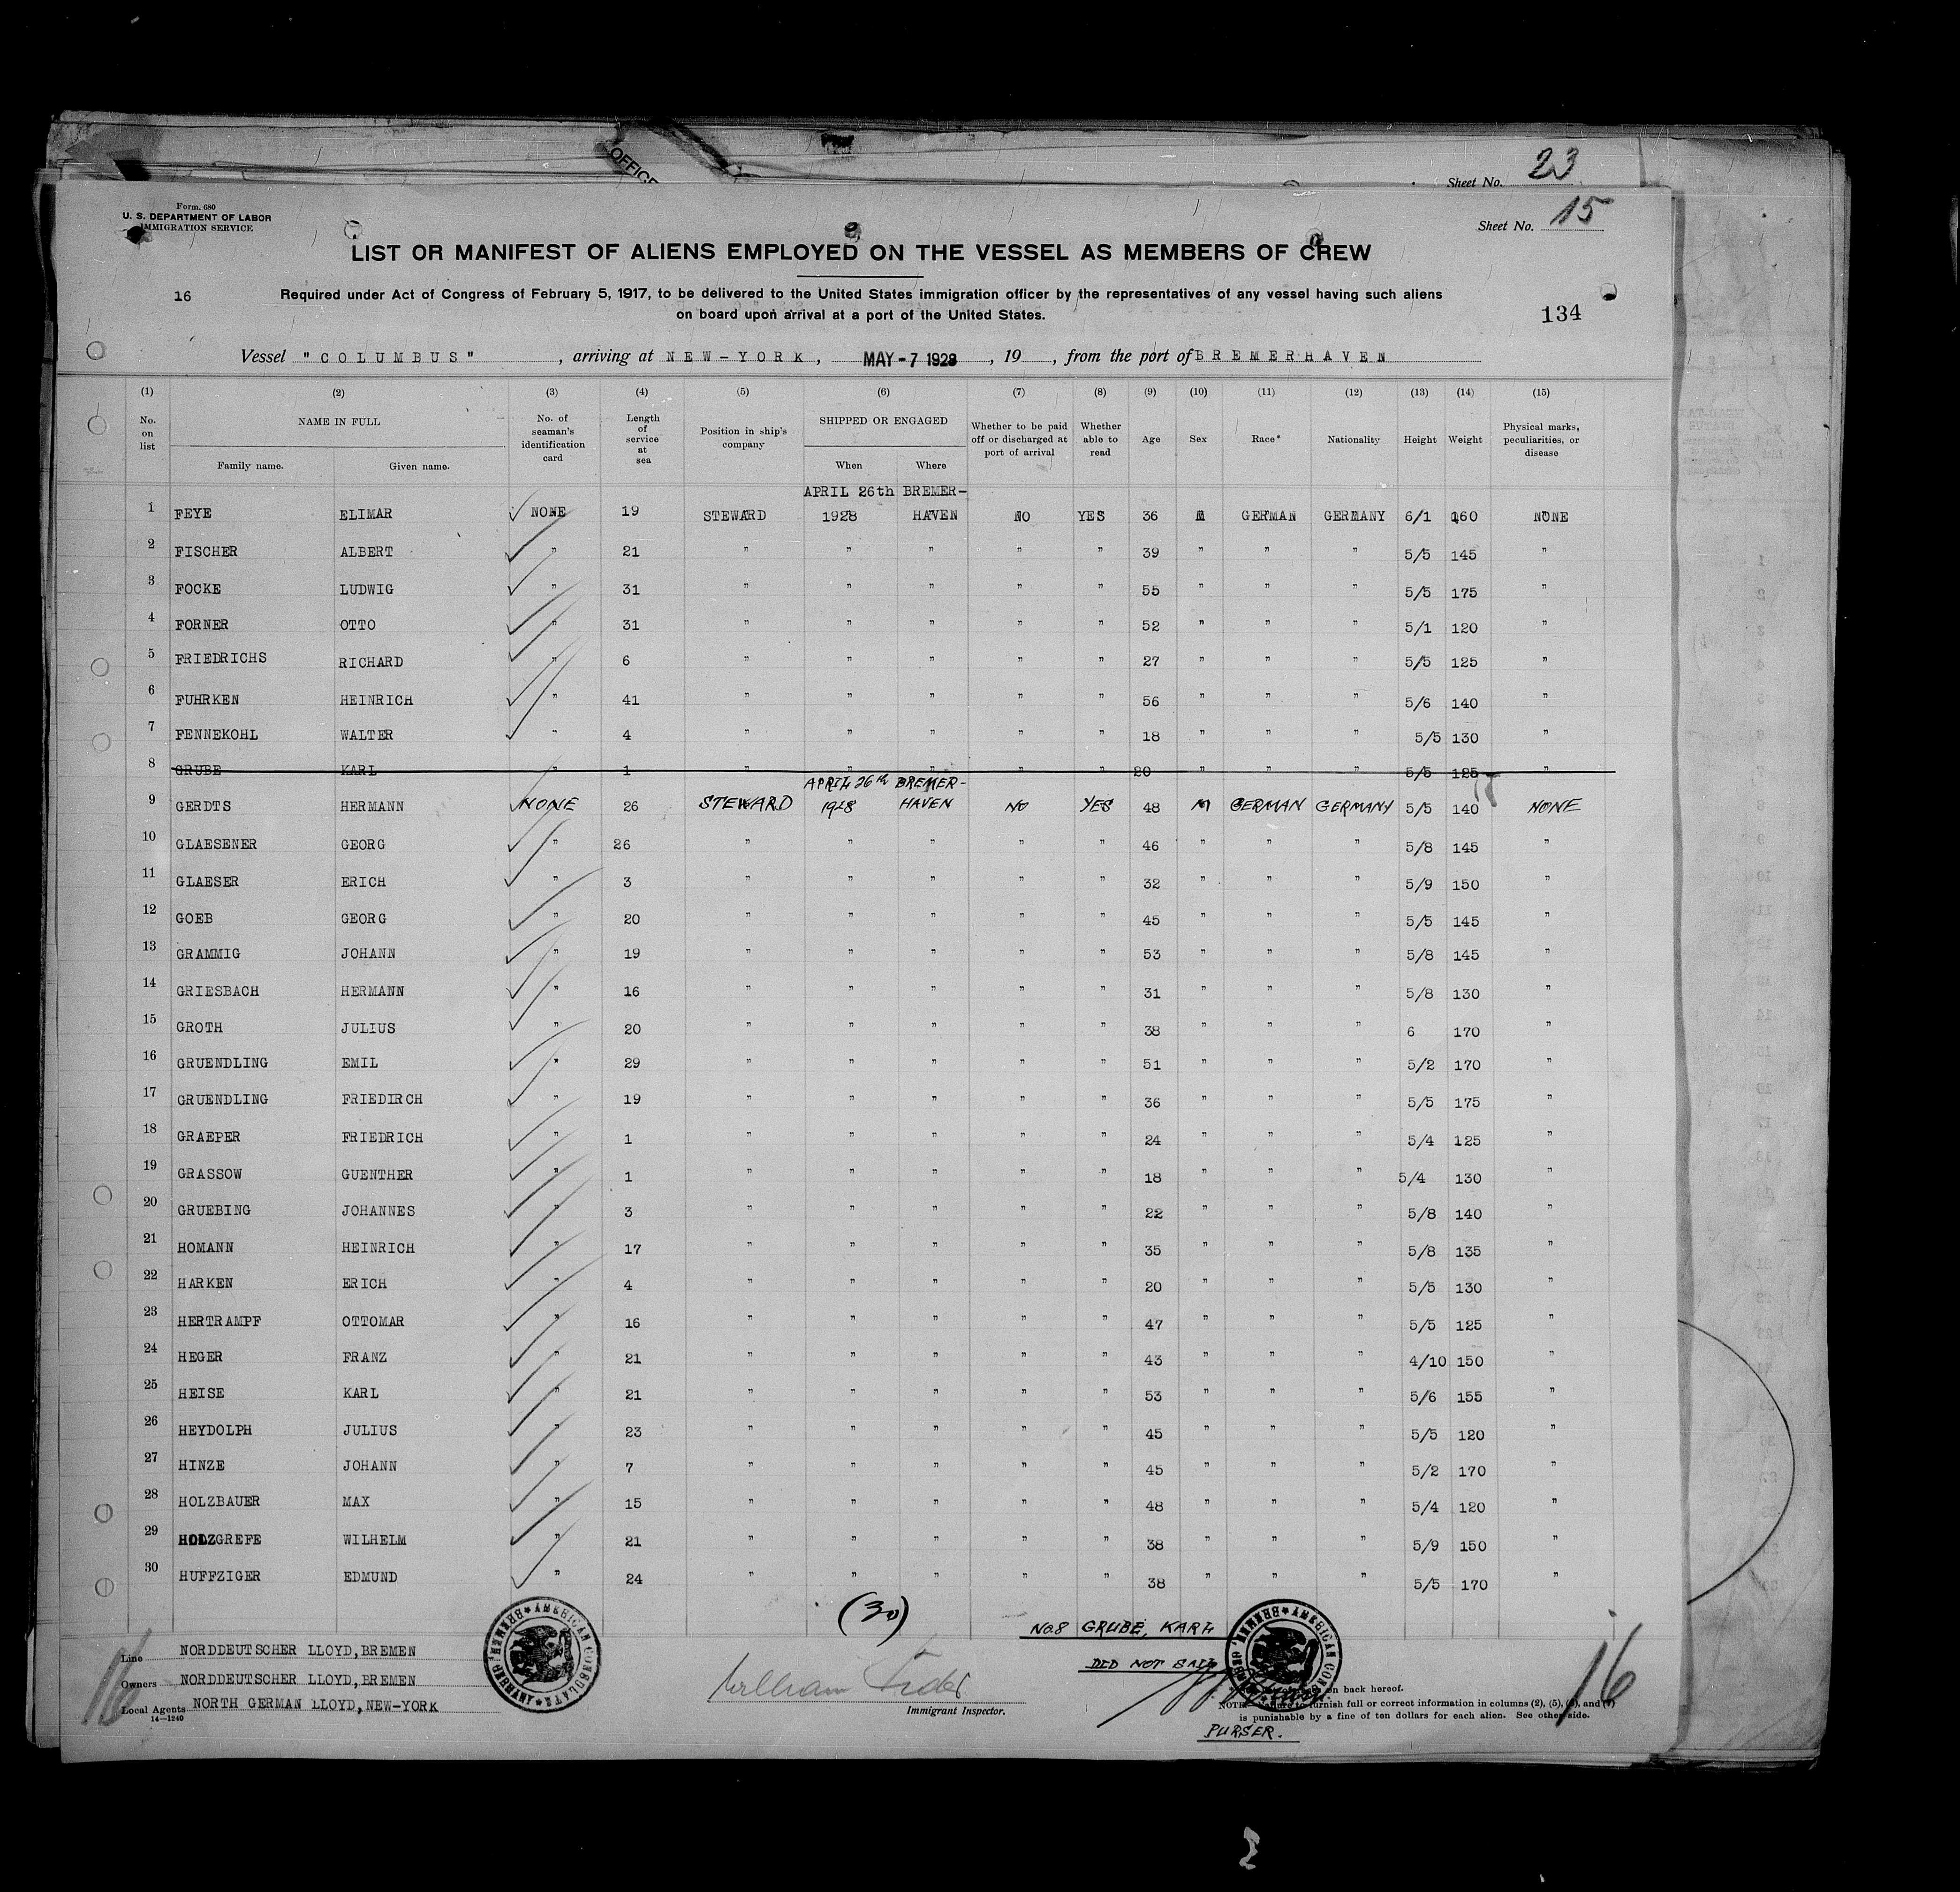 OFFICE
Sheet No. 23
Form. 680
U. S. DEPARTMENT OF LABOR
IMMIGRATION SERVICE
Sheet No. 15
LIST OR MANIFEST OF ALIENS EMPLOYED ON THE VESSEL AS MEMBERS OF CREW
16
Required under Act of Congress of February 5, 1917, to be delivered to the United States immigration officer by the representatives of any vessel having such aliens
on board upon arrival at a port of the United States.
134
Vessel "COLUMBUS", arriving at NEW-YORK, MAY-7 1928, 19 , from the port of BREMERHAVEN
(1) (2) (3) (4) (5) (6) (7) (8) (9) (10) (11) (12) (13) (14) (15)
No. on list NAME IN FULL Family name. Given name. No. of seaman's identification card Length of service at sea Position in ship's company SHIPPED OR ENGAGED When Where Whether to be paid off or discharged at port of arrival Whether able to read Age Sex Race* Nationality Height Weight Physical marks, peculiarities, or disease
APRIL 26th BREMER-
1 FEYE ELIMAR NONE 19 STEWARD 1928 HAVEN NO YES 36 M GERMAN GERMANY 6/1 160 NONE
2 FISCHER ALBERT " 21 " " " " " 39 " " " 5/5 145 "
3 FOCKE LUDWIG " 31 " " " " " 55 " " " 5/5 175 "
4 FORNER OTTO " 31 " " " " " 52 " " " 5/1 120 "
5 FRIEDRICHS RICHARD " 6 " " " " " 27 " " " 5/5 125 "
6 FUHRKEN HEINRICH " 41 " " " " " 56 " " " 5/6 140 "
7 FENNEKOHL WALTER " 4 " " " " " 18 " " " 5/5 130 "
8 GRUBE KARL " 1 " " " " " 20 " " " 5/5 125 "
APRIL 26th BREMER-
9 GERDTS HERMANN NONE 26 STEWARD 1928 HAVEN NO YES 48 M GERMAN GERMANY 5/5 140 NONE
10 GLAESENER GEORG " 26 " " " " " 46 " " " 5/8 145 "
11 GLAESER ERICH " 3 " " " " " 32 " " " 5/9 150 "
12 GOEB GEORG " 20 " " " " " 45 " " " 5/5 145 "
13 GRAMMIG JOHANN " 19 " " " " " 53 " " " 5/8 145 "
14 GRIESBACH HERMANN " 16 " " " " " 31 " " " 5/8 130 "
15 GROTH JULIUS " 20 " " " " " 38 " " " 6 170 "
16 GRUENDLING EMIL " 29 " " " " " 51 " " " 5/2 170 "
17 GRUENDLING FRIEDIRCH " 19 " " " " " 36 " " " 5/5 175 "
18 GRAEPER FRIEDRICH " 1 " " " " " 24 " " " 5/4 125 "
19 GRASSOW GUENTHER " 1 " " " " " 18 " " " 5/4 130 "
20 GRUEBING JOHANNES " 3 " " " " " 22 " " " 5/8 140 "
21 HOMANN HEINRICH " 17 " " " " " 35 " " " 5/8 135 "
22 HARKEN ERICH " 4 " " " " " 20 " " " 5/5 130 "
23 HERTRAMPF OTTOMAR " 16 " " " " " 47 " " " 5/5 125 "
24 HEGER FRANZ " 21 " " " " " 43 " " " 4/10 150 "
25 HEISE KARL " 21 " " " " " 53 " " " 5/6 155 "
26 HEYDOLPH JULIUS " 23 " " " " " 45 " " " 5/5 120 "
27 HINZE JOHANN " 7 " " " " " 45 " " " 5/2 170 "
28 HOLZBAUER MAX " 15 " " " " " 48 " " " 5/4 120 "
29 HOLZGREFE WILHELM " 21 " " " " " 38 " " " 5/9 150 "
30 HUFFZIGER EDMUND " 24 " " " " " 38 " " " 5/5 170 "
(30)
No.8 GRUBE, KARL
DID NOT SAIL
AMERICAN CONSULATE BREMEN, GERMANY
AMERICAN CONSULATE BREMEN, GERMANY
16
16
Line NORDDEUTSCHER LLOYD, BREMEN
Owners NORDDEUTSCHER LLOYD, BREMEN
Local Agents NORTH GERMAN LLOYD, NEW-YORK
14-1240
William
Immigrant Inspector.
on back hereof.
NOTE.—Failure to furnish full or correct information in columns (2), (5), (6), and (7)
is punishable by a fine of ten dollars for each alien. See other side.
PURSER.